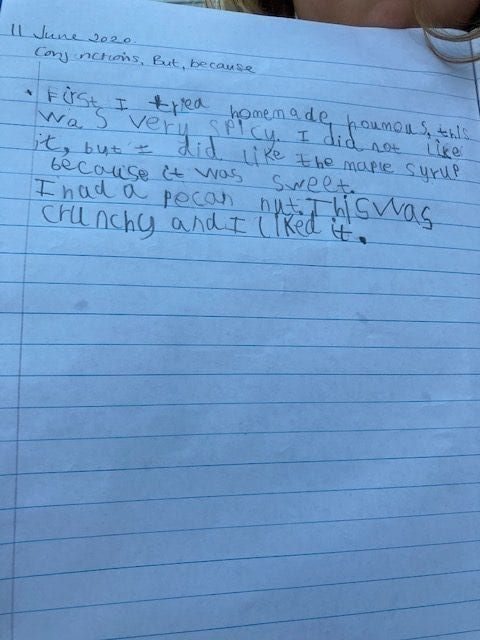 11 June 2020.
Conjunctions, But, because
• First I tried homemade houmous, this
was very spicy. I did not like
it, but I did like the maple syrup
because it was sweet.
I had a pecan nut. This was
crunchy and I liked it.